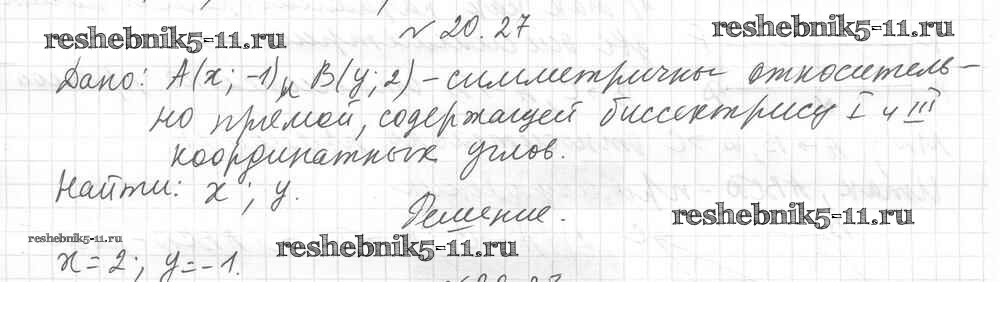 № 20.27
reshebnik5-11.ru
reshebnik5-11.ru
Дано: A(x; -1) и B(y; 2) - симметричны относитель-
но прямой, содержащей биссектрису I и III
координатных углов.
Найти: x; y.
Решение.
reshebnik5-11.ru
reshebnik5-11.ru
reshebnik5-11.ru
x = 2; y = -1.